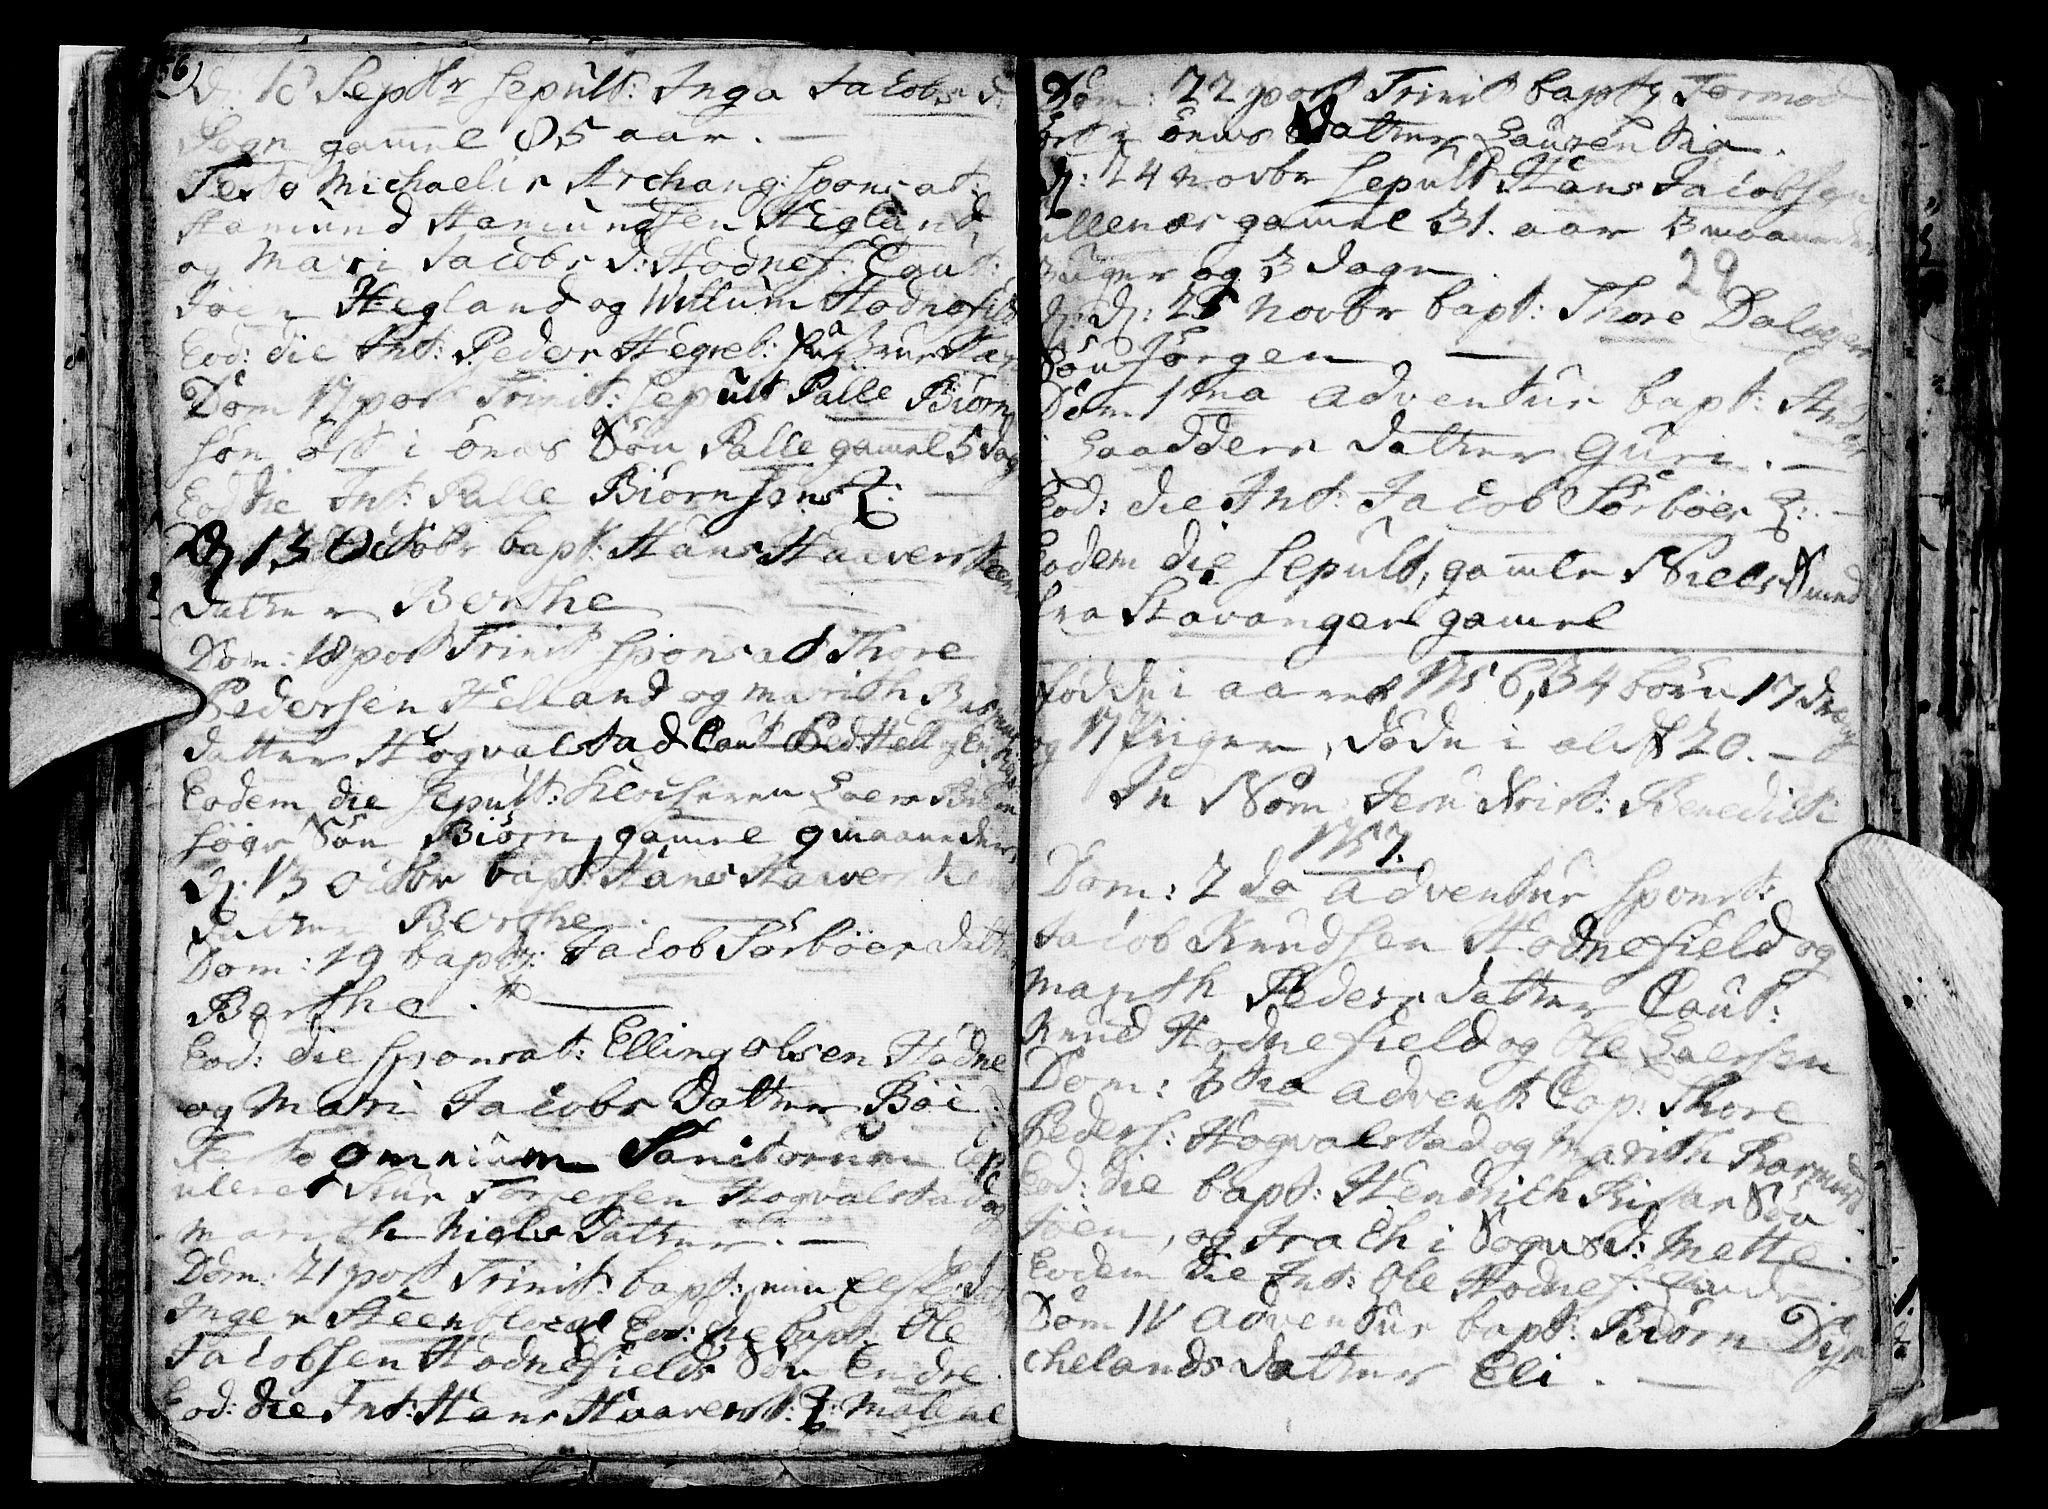 56)
d: 18 Septbr sepult: Inga Jacobs d:
Sogn gamel 85 aar. —
Festo Michaelis Archang: sponsat:
Hamund Hamundsen Hegland
og Mari Jacobs d: Hodnef: Caut:
Joen Hegland og Willum Hodnefield
Eod: die Int: Peder Hegreb:
Dom 17 post Trinit: sepult Palle Biørn
søn øst i ønes Søn Palle gamel 5 dage
Eod die Int: Palle Biørnsøns Q: —
D 13 Octobr bapt: Hans Haaversteen
datter Berthe — —
Dom: 18 post Trinit sponsat Thore
Pedersen Helland og Marith Rasmus
datter Hogvalstad Caut Ped Hell og
Eodem die sepult: Klocheren Laers
Søn Biørn, gamel 9 maaneder,
d: 13 octbr bapt: Hans Haaversteens
datter Berthe. —
Dom: 19 bapt: Jacob Sørbøes datter
Berthe. —
Eod: die sponsat: Elling Olsen Hodne
og Mari Jacobs Datter Bøe:
Festo omnium Sanctorum
Siur Torgersen Hogvalstad og
Marith Niels datter. —
Dom: 21 post Trinit: bapt: min
Inger Steenbloch Eod: die bapt: Ole
Jacobsen Hodnefields Søn Endre.
Eod: die Int: Hans Haaverst: Q: Malene
Dom: 22 post Trinit bapt: Tormod
øst i ønes Datter Laurentia.
d: 24 Novbr sepult Hans Jacobsen
ullenæs gamel 31. aar 3 maaneder
3 uger og 3 dage.
29
d: 25 Novbr bapt: Thore Dalagers
Søn Jørgen —
Dom 1ma adventus bapt: And
Laadders datter Guri. —
Eod: die Int: Jacob Sørbøes Q: —
Eodem die sepult, gamle Niels Smed
fra Stavanger gamel
fødde i aaret 1756, 34 børn 17 drenge
og 17 Piger, døde i alt 20. —
In Nom: Jesu Xrist: Benedicti
1757.
Dom: 2da adventus sponst:
Jacob Knudsen Hodnefield og
Marith Peders datter Caut:
Knud Hodnefield og Ole Laersen
Dom: 3tia advent: Cop: Thore
Peders: Hogvalstad og Marith Rasmus d
Eod: die bapt: Hendrich Søn
Joen, og i Sogns d: Mette.
Eodem die Int: Ole Hodnef:
Dom IV adventus bapt: Biørn Dys
chelands datter Eli. —